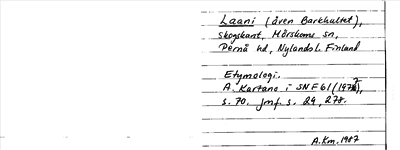 Laani (även Barkhultet),
Skogskant, Mörskoms sn,
Pernå hd, Nylands l. Finland
Etymologi.
A. Karsano i SNF 61 (1972),
s. 70. jmf. s. 29, 278.
A.Km. 1987